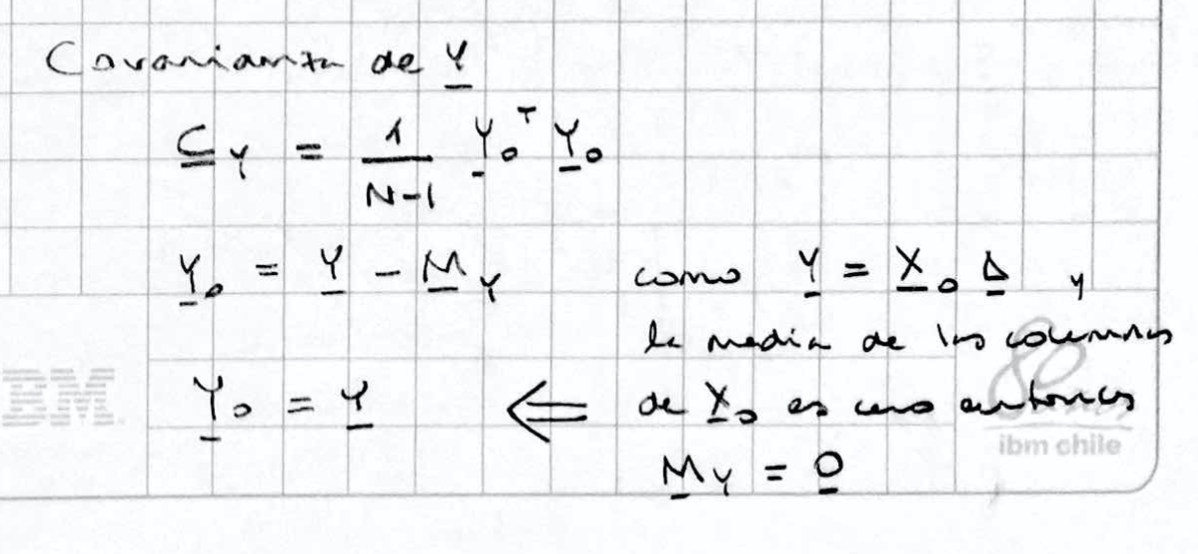 Covarianza de Y
C_Y = 1/(N-1) Y_0^T Y_0
Y_0 = Y - M_Y como Y = X_0 Δ y
la media de las columnas
Y_0 = Y ⇐ de X_0 es cero entonces
M_Y = 0
IBM.
80 años
ibm chile